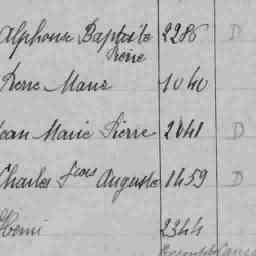 Alphonse Baptiste 2286 D
Pierre
Pierre Marie 1040
Jean Marie Pierre 2041 D
Charles Jean Auguste 1459 D
Henri 2344